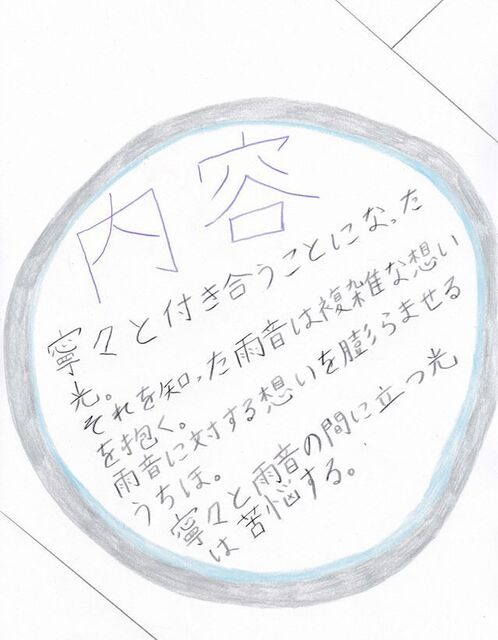 内容
寧々と付き合うことになった
光。
それを知った雨音は複雑な想い
を抱く。
雨音に対する想いを膨らませる
うちほ。
寧々と雨音の間に立つ光
は苦悩する。